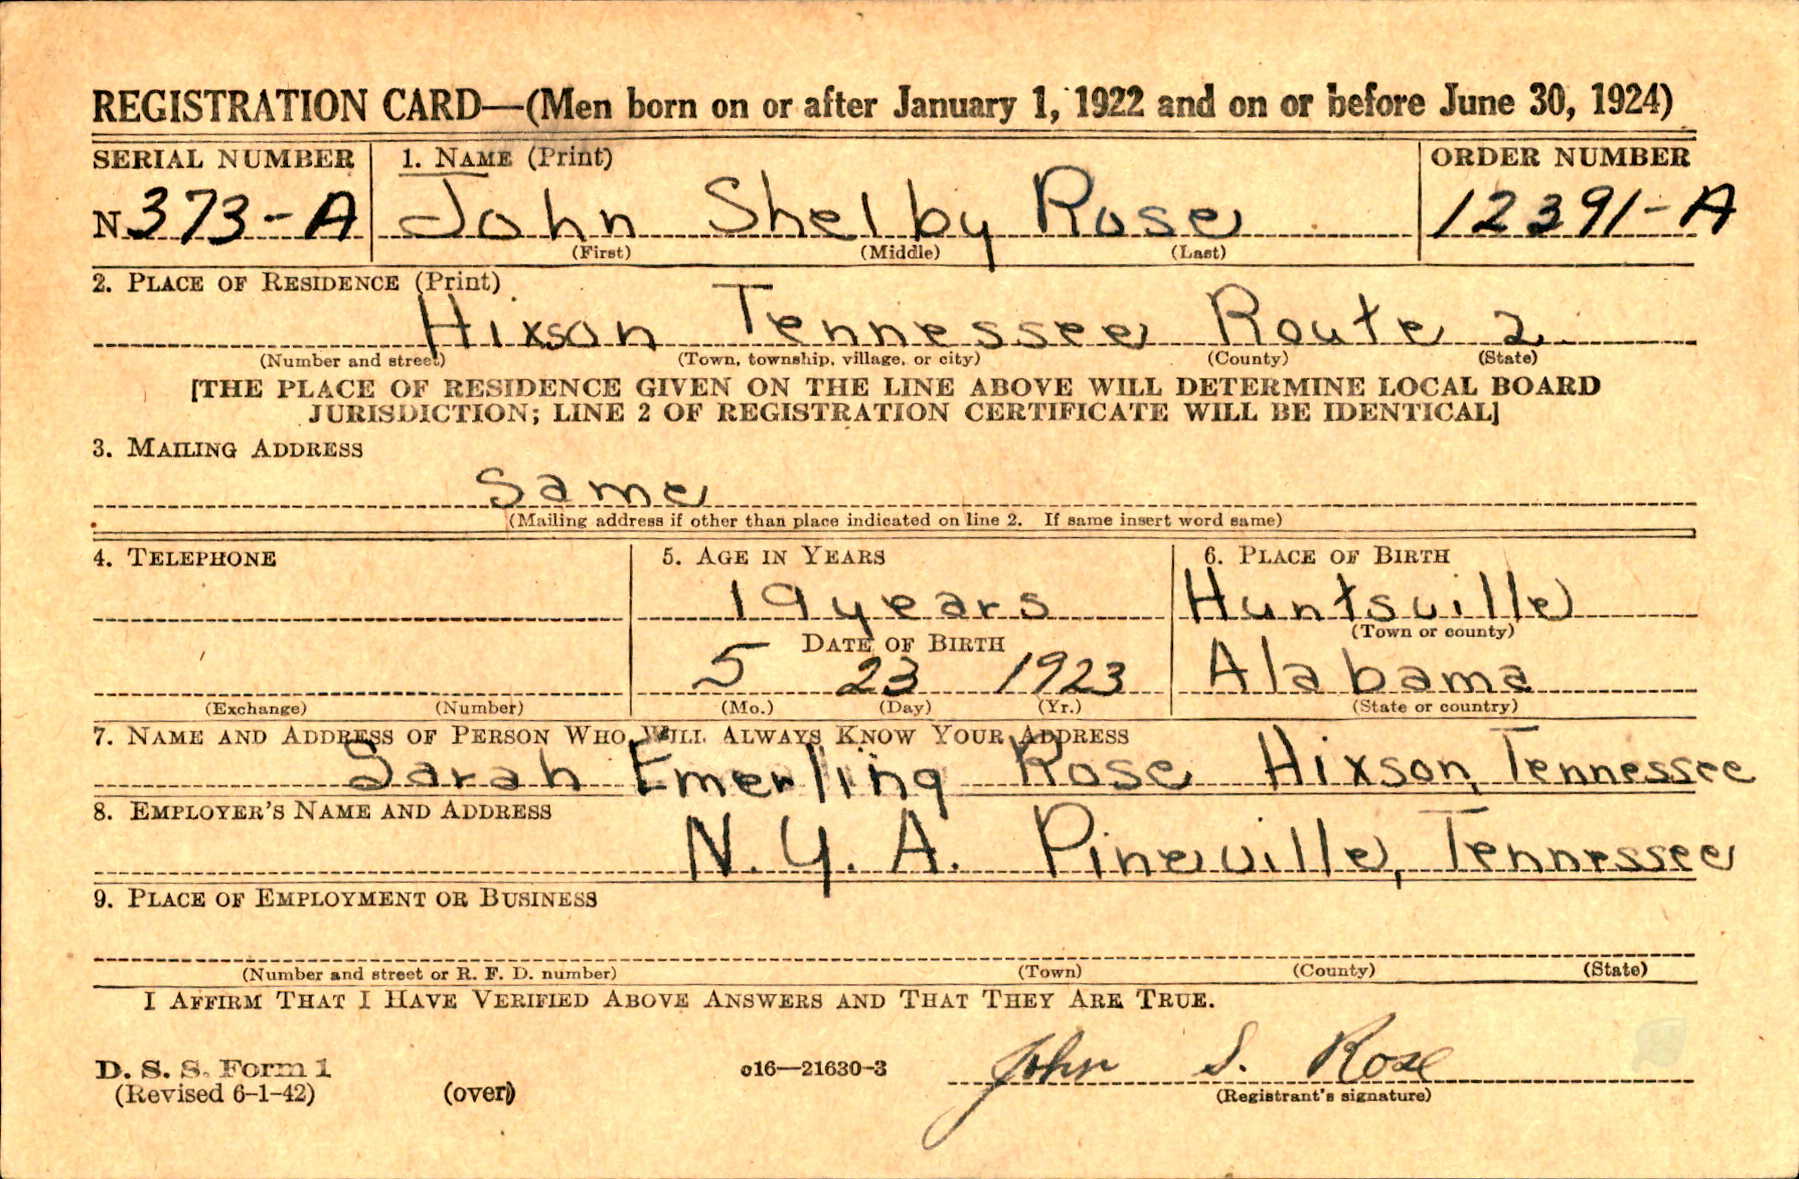 REGISTRATION CARD—(Men born on or after January 1, 1922 and on or before June 30, 1924)
SERIAL NUMBER 1. NAME (Print) ORDER NUMBER
N 373-A John Shelby Rose 12391-A
(First) (Middle) (Last)
2. PLACE OF RESIDENCE (Print)
Hixson Tennessee Route 2
(Number and street) (Town, township, village, or city) (County) (State)
[THE PLACE OF RESIDENCE GIVEN ON THE LINE ABOVE WILL DETERMINE LOCAL BOARD
JURISDICTION; LINE 2 OF REGISTRATION CERTIFICATE WILL BE IDENTICAL]
3. MAILING ADDRESS
Same
(Mailing address if other than place indicated on line 2. If same insert word same)
4. TELEPHONE 5. AGE IN YEARS 6. PLACE OF BIRTH
19 years Huntsville
DATE OF BIRTH (Town or county)
5 23 1923 Alabama
(Exchange) (Number) (Mo.) (Day) (Yr.) (State or country)
7. NAME AND ADDRESS OF PERSON WHO WILL ALWAYS KNOW YOUR ADDRESS
Sarah Emerling Rose Hixson, Tennessee
8. EMPLOYER'S NAME AND ADDRESS
N. Y. A. Pineville, Tennessee
9. PLACE OF EMPLOYMENT OR BUSINESS
(Number and street or R. F. D. number) (Town) (County) (State)
I AFFIRM THAT I HAVE VERIFIED ABOVE ANSWERS AND THAT THEY ARE TRUE.
D. S. S. Form 1 c16—21630-3 John S. Rose
(Revised 6-1-42) (over) (Registrant's signature)